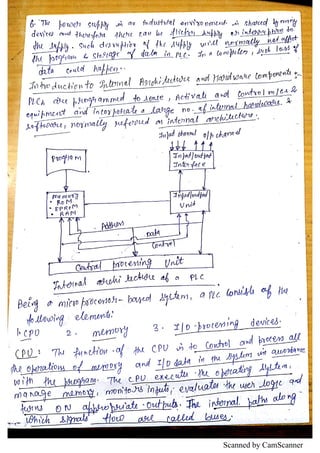 6. The power supply in an industrial environment is shared by many
devices and therefore there can be flicker supply or interruption to
the supply. Such disruption of the supply will normally not affect
the program & storage of data in PLC. In a computer, such loss of
data could happen.
Introduction to Internal Architecture and Hardware Components :-
PLCs are programmed to sense, activate and control m/cs &
equipment and incorporate a large no. of internal hardware &
software, normally referred as internal architecture.
Input channel O/P channel
Program
Input/output
Interface
Memory
• ROM
• EPROM
• RAM
Input/output
Unit
Address
Data
Control
Central processing Unit
Internal architecture of a PLC
Being a microprocessor-based system, a PLC consists of the
following elements:
1. CPU 2. memory 3. I/O processing devices.
CPU : The function of the CPU is to Control and process all
the operations of memory and I/O data in the system in accordance
with the program. The CPU executes the operating system,
manage memory, monitors inputs, evaluates the user logic and
turns ON appropriate outputs. The internal paths along
which signals flow are called buses.
Scanned by CamScanner